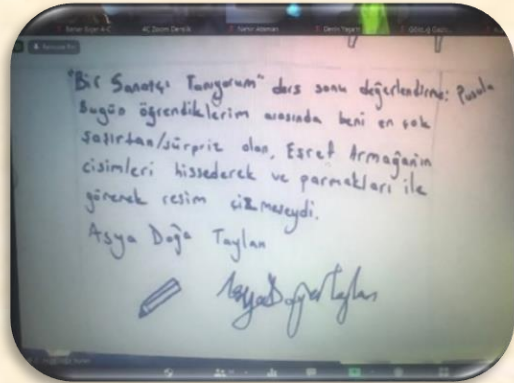 AC Zoom Derslik
"Bir Sanatçı Tanıyorum" ders sonu değerlendirme: Pusula
Bugün öğrendiklerim arasında beni en çok
şaşırtan/sürpriz olan, Eşref Armağanın
cisimleri hissederek ve parmakları ile
görerek resim çizmeseydi.
Asya Doğa Taylan